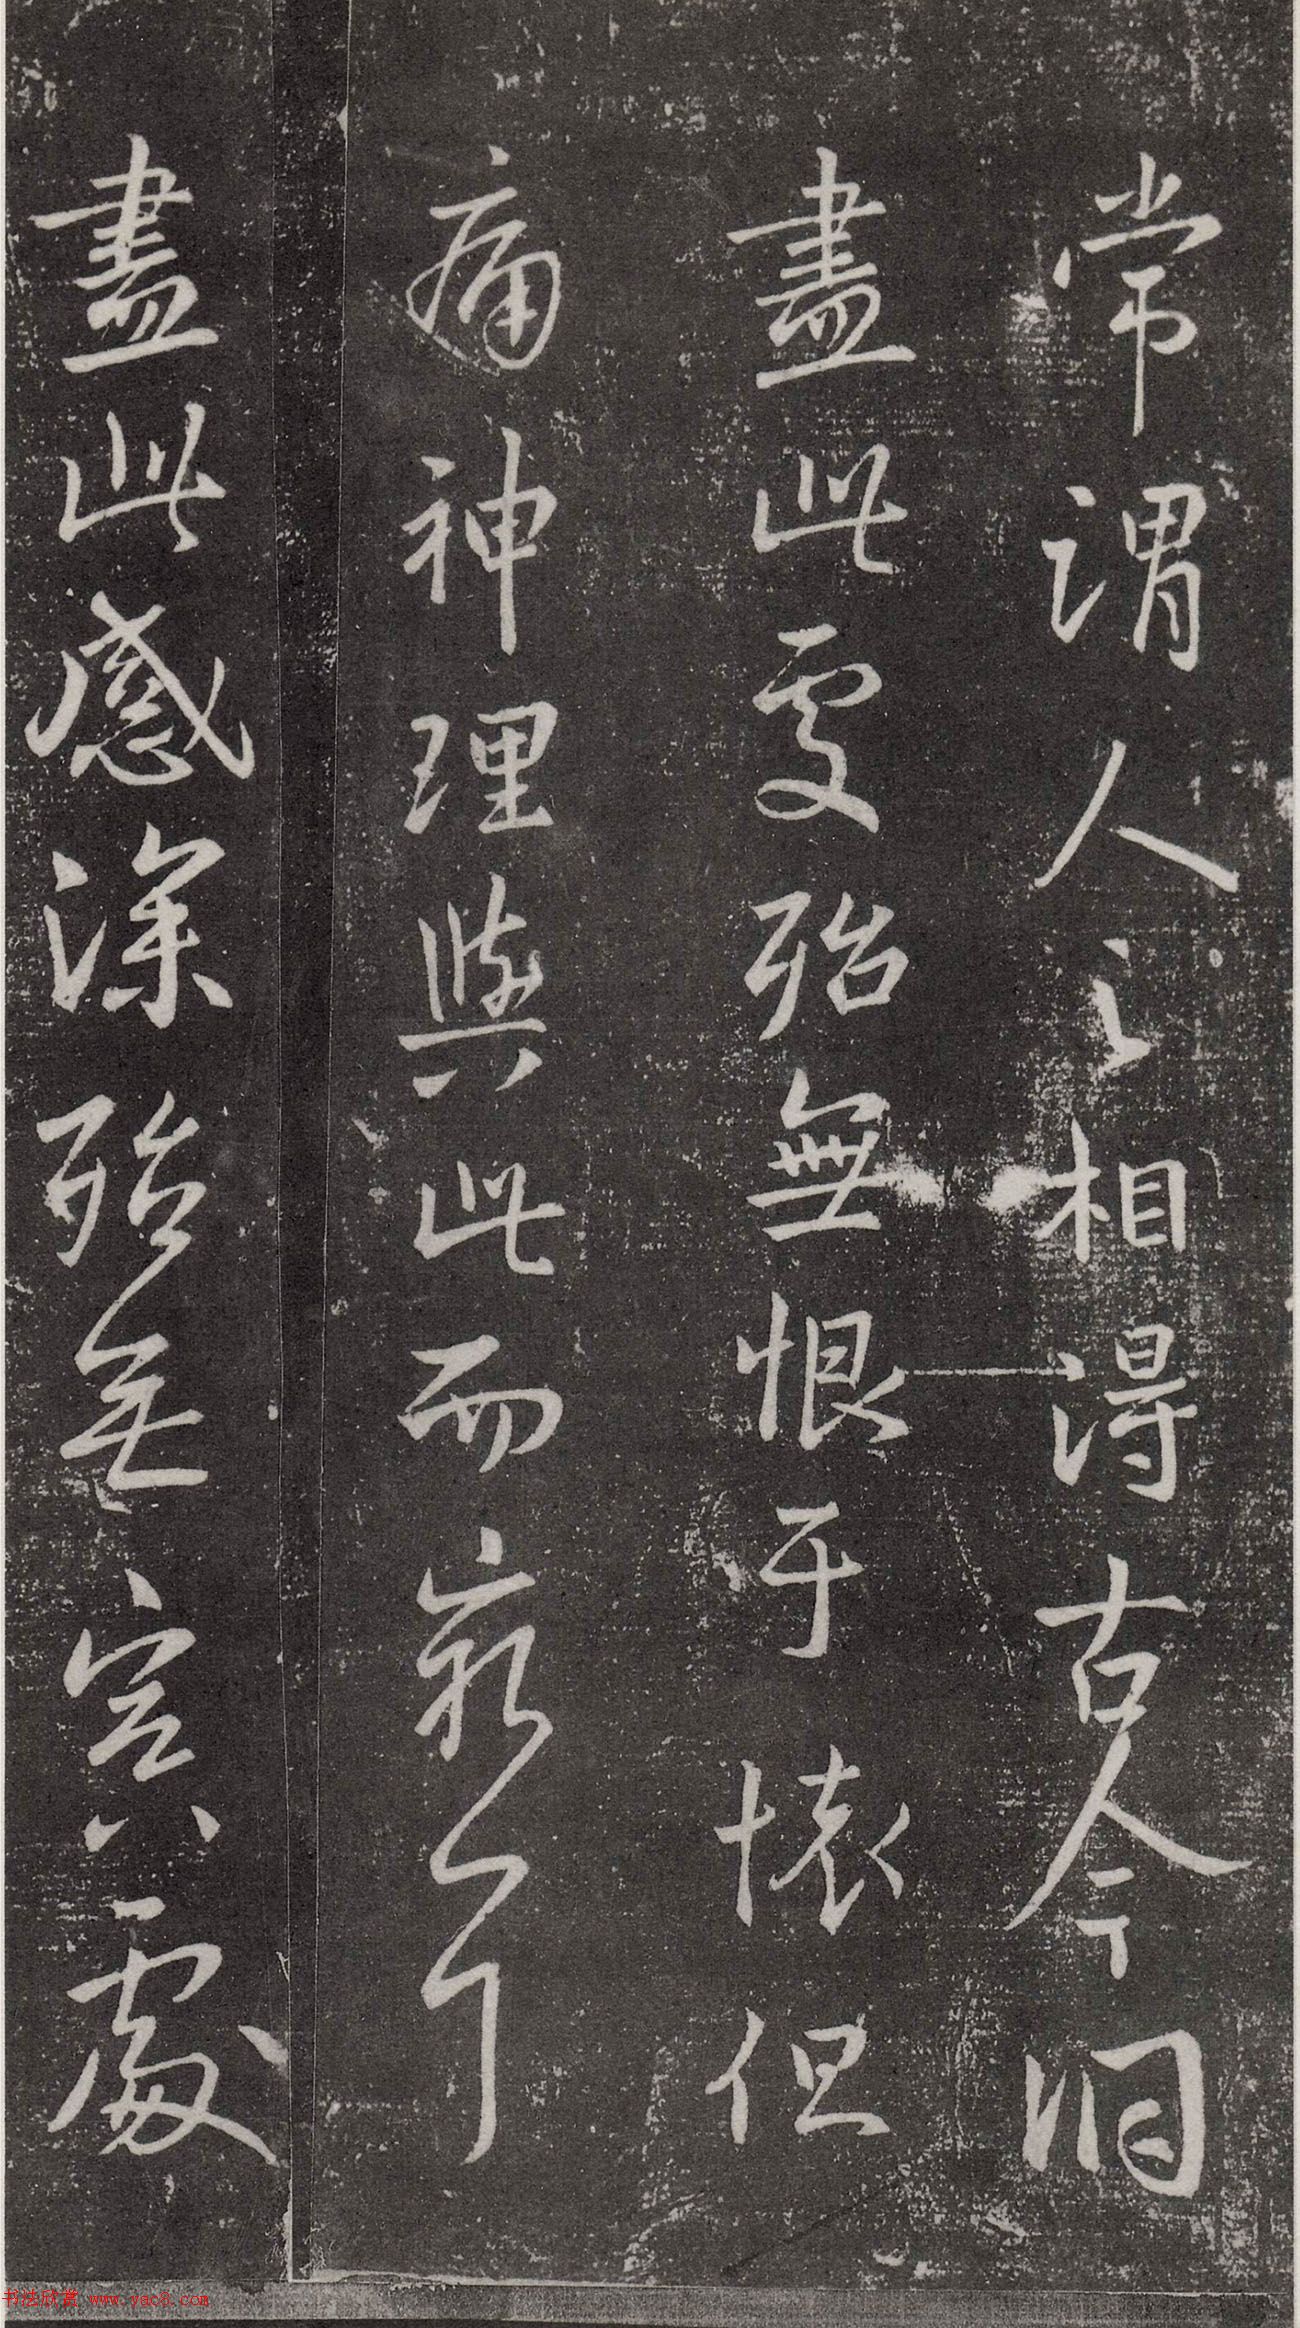 常謂人之相得古今洞
盡此處殆無恨于懷但
痛神理與此而窮耳
盡此感深殆無冥處
书法欣赏 www.yac8.com